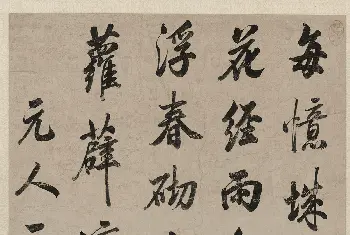 每憶珠
花經雨
浮春砌
蘿薜
元人